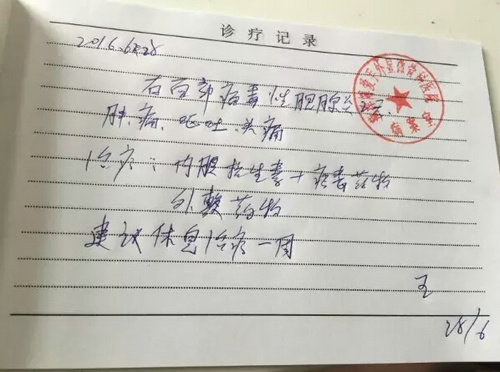 诊疗记录
2016.6.28
右面部病毒性腮腺炎
肿、痛、呕吐、头痛
治疗：内服抗生素+病毒药物
外敷药物
建议休息治疗一周
王
28/6